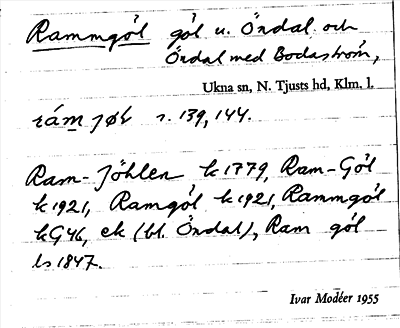 Rammgöl göl u. Öndal och
Öndal med Bodaström,
Ukna sn, N. Tjusts hd, Klm. l.
rám jøl s. 139, 144.
Ram-Jöhlen k 1779, Ram-Göl
k 1921, Ramgöl k 1921, Rammgöl
kG46, ek (bl. Öndal), Ram göl
ls 1847.
Ivar Modéer 1955